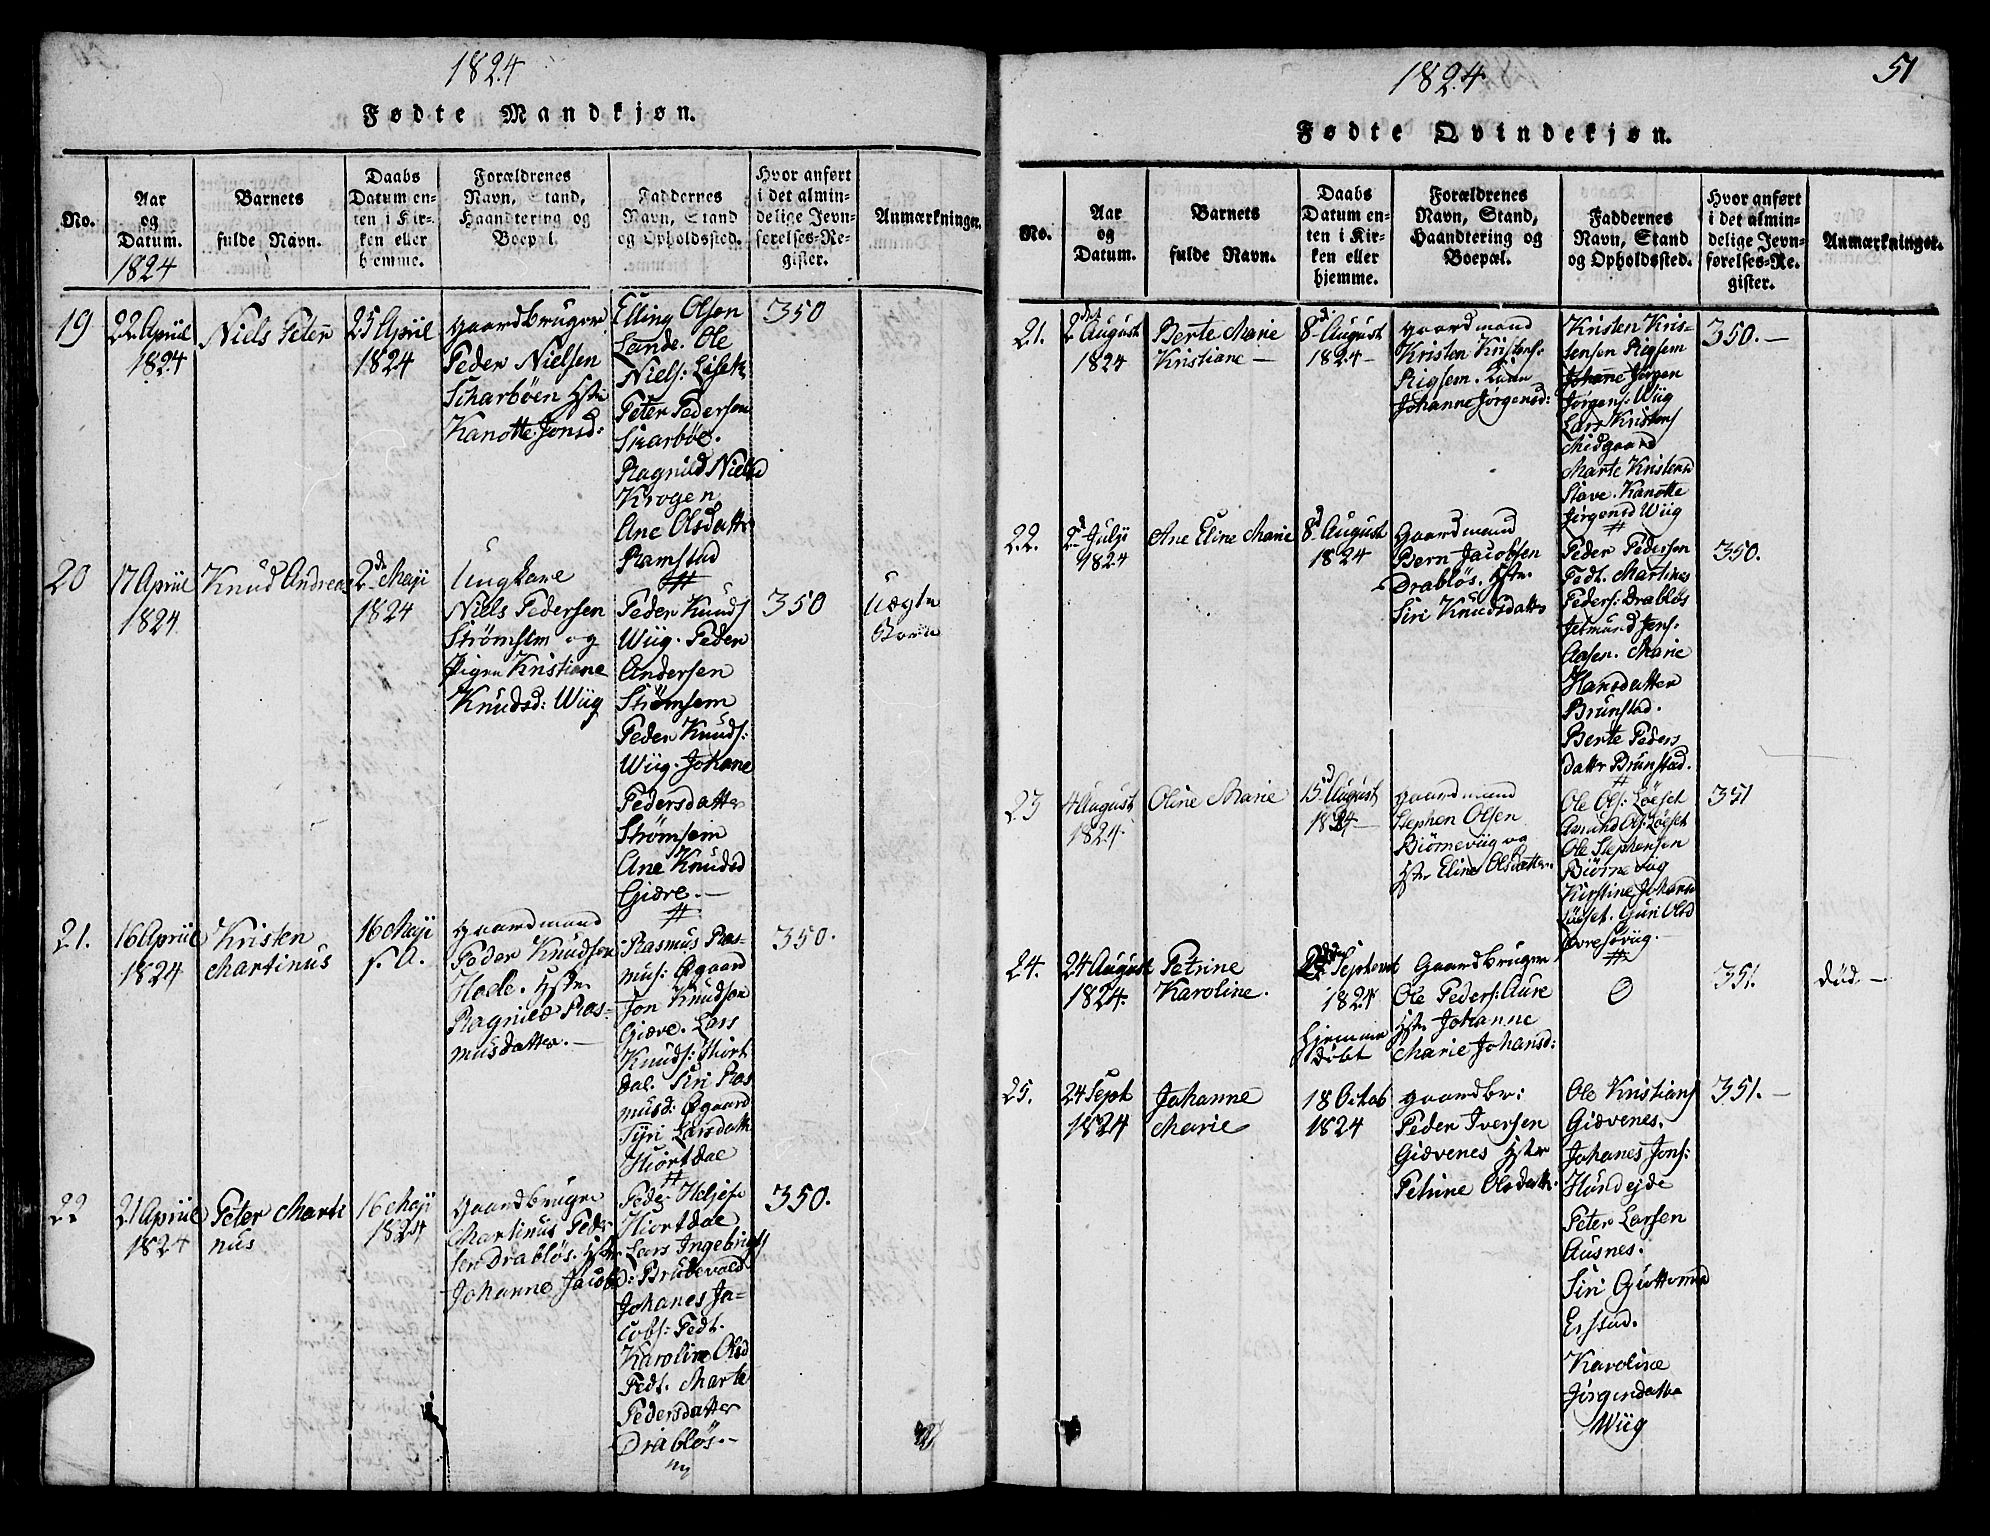 1824
Fødte Mandkjøn.
No.
Aar
og
Datum.
1824
Barnets
fulde Navn.
Daabs
Datum en-
ten i Kir-
ken eller
hjemme.
Forældrenes
Navn, Stand,
Haandtering og
Boepæl.
Faddernes
Navn, Stand
og Opholdssted.
Hvor anført
i det almin-
delige Jevn-
førelses-Re-
gister.
Anmærkninger.
19
22 April
1824
Niels Peter
25 April
1824
gaardbruger
Peder Nielsen
Scharbøen Hstr
Kanotte Jonsd:
Elling Olsen
Lande. Ole
Niels: Liset
Peter Pedersen
Skarbøe.
Ragnild Nielsd
Krogen
Ane Olsdatter
Ramstad
350
20
17 April
1824
Knud Andreas
2d Maji
1824
Ungkarl
Niels Pedersen
Strømsem og
Pigen Kristiane
Knudsd: Wiig
Peder Knuds
Wiig. Peder
Andersen
Strømsem
Peder Knuds:
Wiig. Johane
Pedersdatter
Strømsem
Ane Knudsd
Giære.—
350
Uægte
Barn
21.
16 April
1824
Kristen
Martinus
16 Maji
s. A.
gaardmand
Peder Knudsen
Hoele. Hstr
Ragnild Ras-
musdatter.—
Rasmus Ras-
mus: Øgaard
Jon Knudsen
Giære. Lars
Knuds: Hiort
dal. Siri Ras
musd: Øgaard
Syri Larsdattr
Hiortdal
350.
22
21 April
1824
Peter Marti
nus
16 Maji
1824
gaardbruger
Martinus Peder
sen Drabløs. Hstr
Johanne Jacobsd:
Peder Heljese
Hiortdal
Lars Ingebrigts
Brudevold
Johanes Ja-
cobs: Fedt.
Karoline Olsd
Fedt. Marte
Pedersdatter
Drabløs.—
350.
1824
51
Fødte Qvindekjøn.
No.
Aar
og
Datum.
Barnets
fulde Navn.
Daabs
Datum en-
ten i Kir-
ken eller
hjemme.
Forældrenes
Navn, Stand,
Haandtering og
Boepæl.
Faddernes
Navn, Stand
og Opholdssted.
Hvor anført
i det almin-
delige Jevn-
førelses-Re-
gister.
Anmærkninger.
21.
2det August
1824
Berte Marie
Kristiane —
8d August
1824 —
gaardmand
Kristen Kristens:
Rigsem.
Johanne Jørgensd:
Kristen Kris-
tensen Rigsem
Johanne Jørgen
Jørgens: Wiig
Lars Kristens
Midgaard
Marte Kristensd
Stave. Kanotte
Jørgensd Wiig
350. —
22.
2d Julji
1824
Ane Eline Marie
8d August
1824
Gaardmand
Bern Jacobsen
Drabløs. Hstr.
Siri Knudsdattr
Peder Pedersen
Fedt. Martines
Peders: Drabløs
Jetmund Jens:
Aasen. Marie
Hansdatter
Brunstad.
Berte Peders
dattr Brunstad.
350.
23
4 August
1824.
Oline Marie
15d August
1824 —
gaardmand
Stephen Olsen
Biørneviig og
Hstr Eline Olsdatter.
Ole Ols: Løeset
Amund Ols: Løeset
Ole Stephensen
Biørneviig
Kirstine Johansd
Løeset. Guri Olsd
Øvresøviig.—
351
24.
24 August
1824.
Petrine
Karoline.
Septembr
1824
hjemme
døbt
Gaardbruger
Ole Peders: Aure
Hstr Johanne
Marie Johansd:
O
351.
død —
25.
24 Sept
1824
Johanne
Marie
18 Octob
1824
gaardbr:
Peder Iversen
Giævenes Hstr
Petrine Olsdattr
Ole Kristians
Giævenes.
Johanes Jons:
Hundejde
Peter Larsen
Ausnes.
Siri Guttormsd
Erstad.
Karoline
Jørgendatter
Wiig
351. —